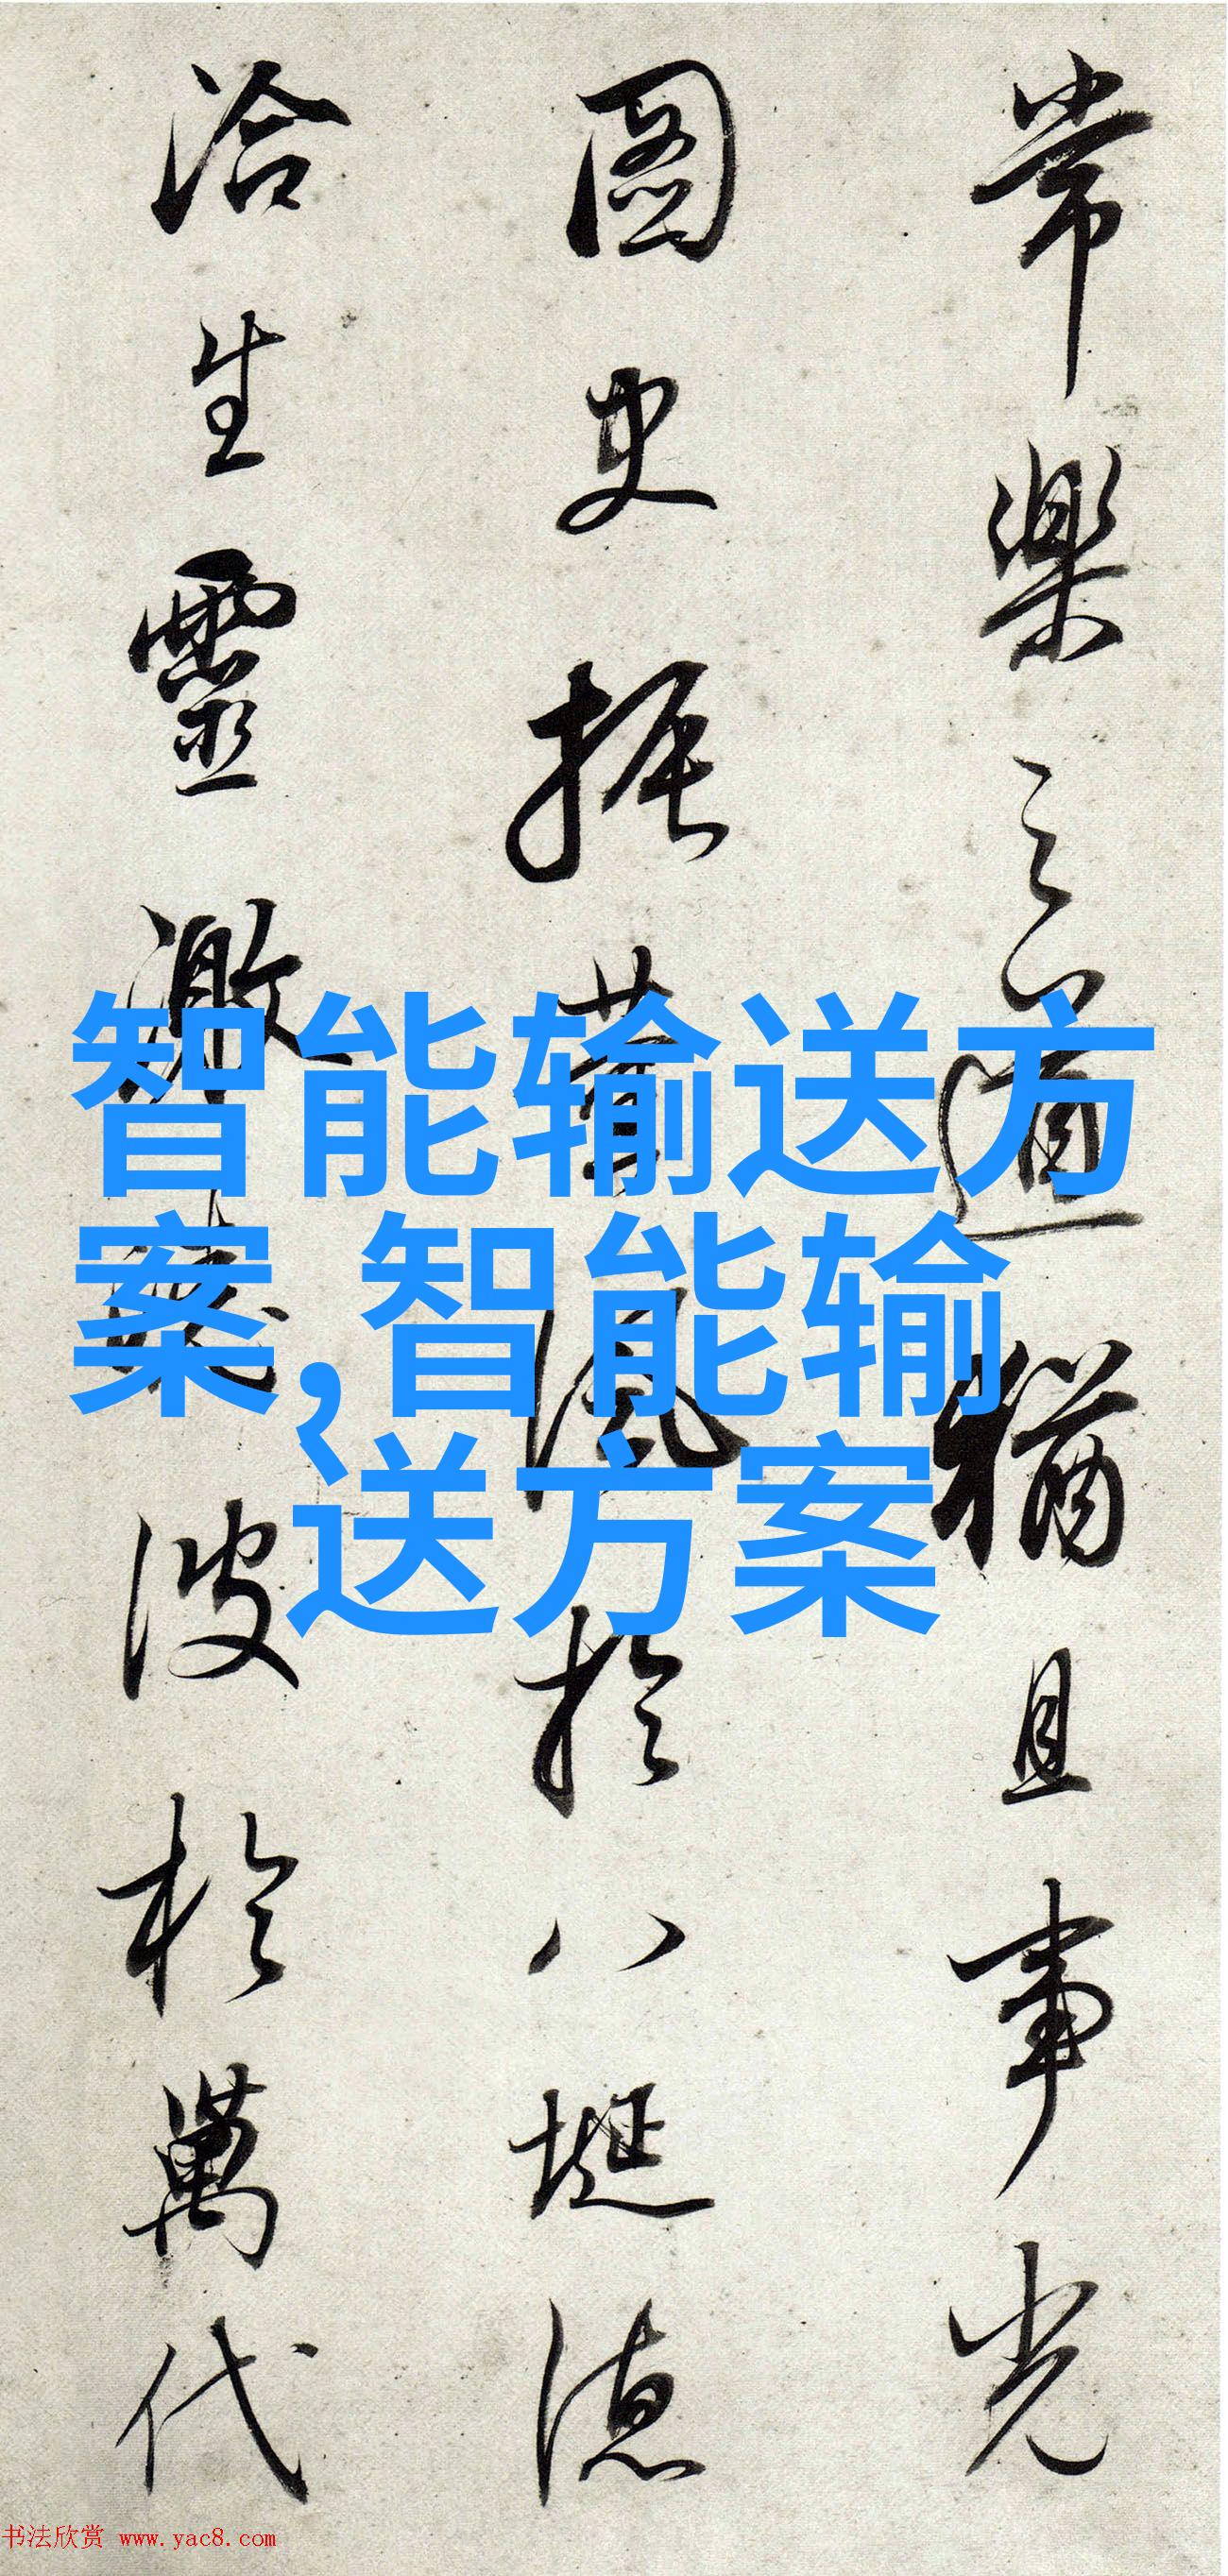 常樂之道猶且事光
圖史振葉風於八埏德
洽生靈激波於萬代
智能输送方
案,智能输
送方案
书法欣赏 www.yac8.com